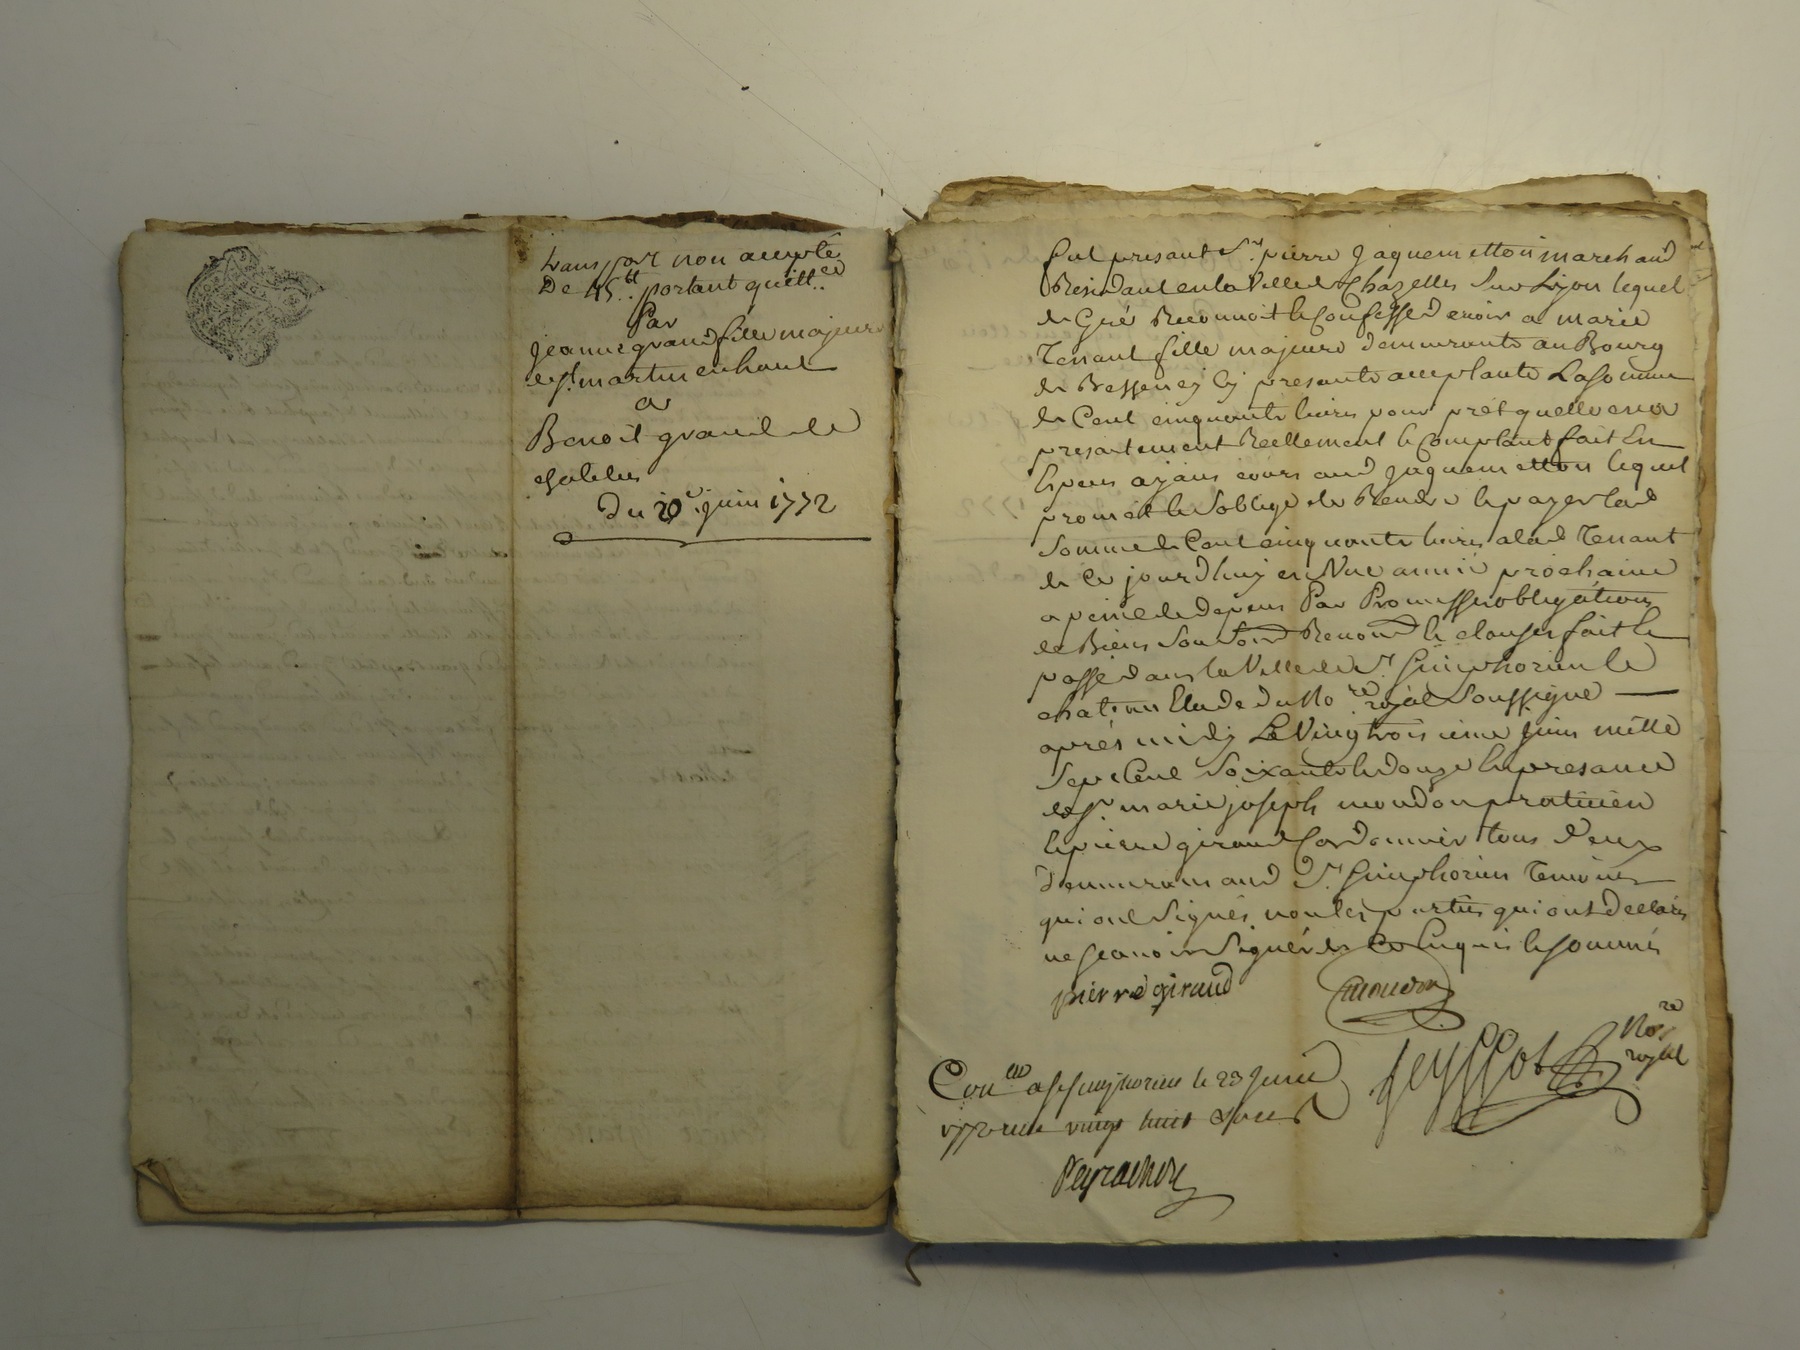 transport non accepté
De 45.tt portant quitt.ce
Par
jeanne grand fille majeure
de st. martin en haut
a
Benoit grand de
du 20.e juin 1772
fut presant Sr. pierre jaquemetton marchand
Residant en la Ville de Chazelles Sur Lyon lequel
de Gré Reconnoit & Confesse devoir a marie
Tenant fille majeure demeurante au Bourg
de Besseney Cy presante acceptante La somme
de Cent cinquante livres pour prêt quelle en a
presentement Reellement & Comptant fait En
Especes ayans cours aud jaquemetton lequel
promet & Soblige de Rendre & payer lad
Somme de Cent cinquante livres a lad Tenant
de Ce jourdhuy en Une année prochaine
a peine de depens Par Promesse obligations
de Biens Soud Renond & clauses fait &
passé dans la Ville de St. Simphorien le
chateau Etude du No.re royal Soussigné
aprés midy Le Vingtroisieme juin mille
Sept Cent Soixante & douze En presance
de Sr. marie joseph moudon praticien
& pierre giraud Cordonnier tous deux
demeurans aud St. Simphorien Temoins
qui ont Signés non les parties qui ont declarés
ne scavoir Signer de Ce Enquis & sommés
pierre giraud moudon
No.re
royal
Con.lé a st simphorien le 23 juin
1772 reçu vingt huit s
Peyrachon